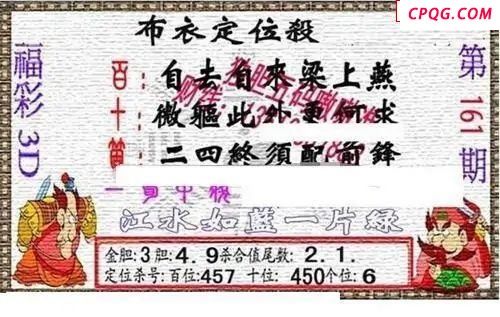 CPQG.COM
布衣定位殺
福彩3D
第161期
百：自去自來梁上燕
十：微軀此外更何求
二四終須配前鋒
江水如藍一片綠
金胆:3胆:4.9杀合值尾数:2.1.
定位杀号:百位:457 十位:450个位:6